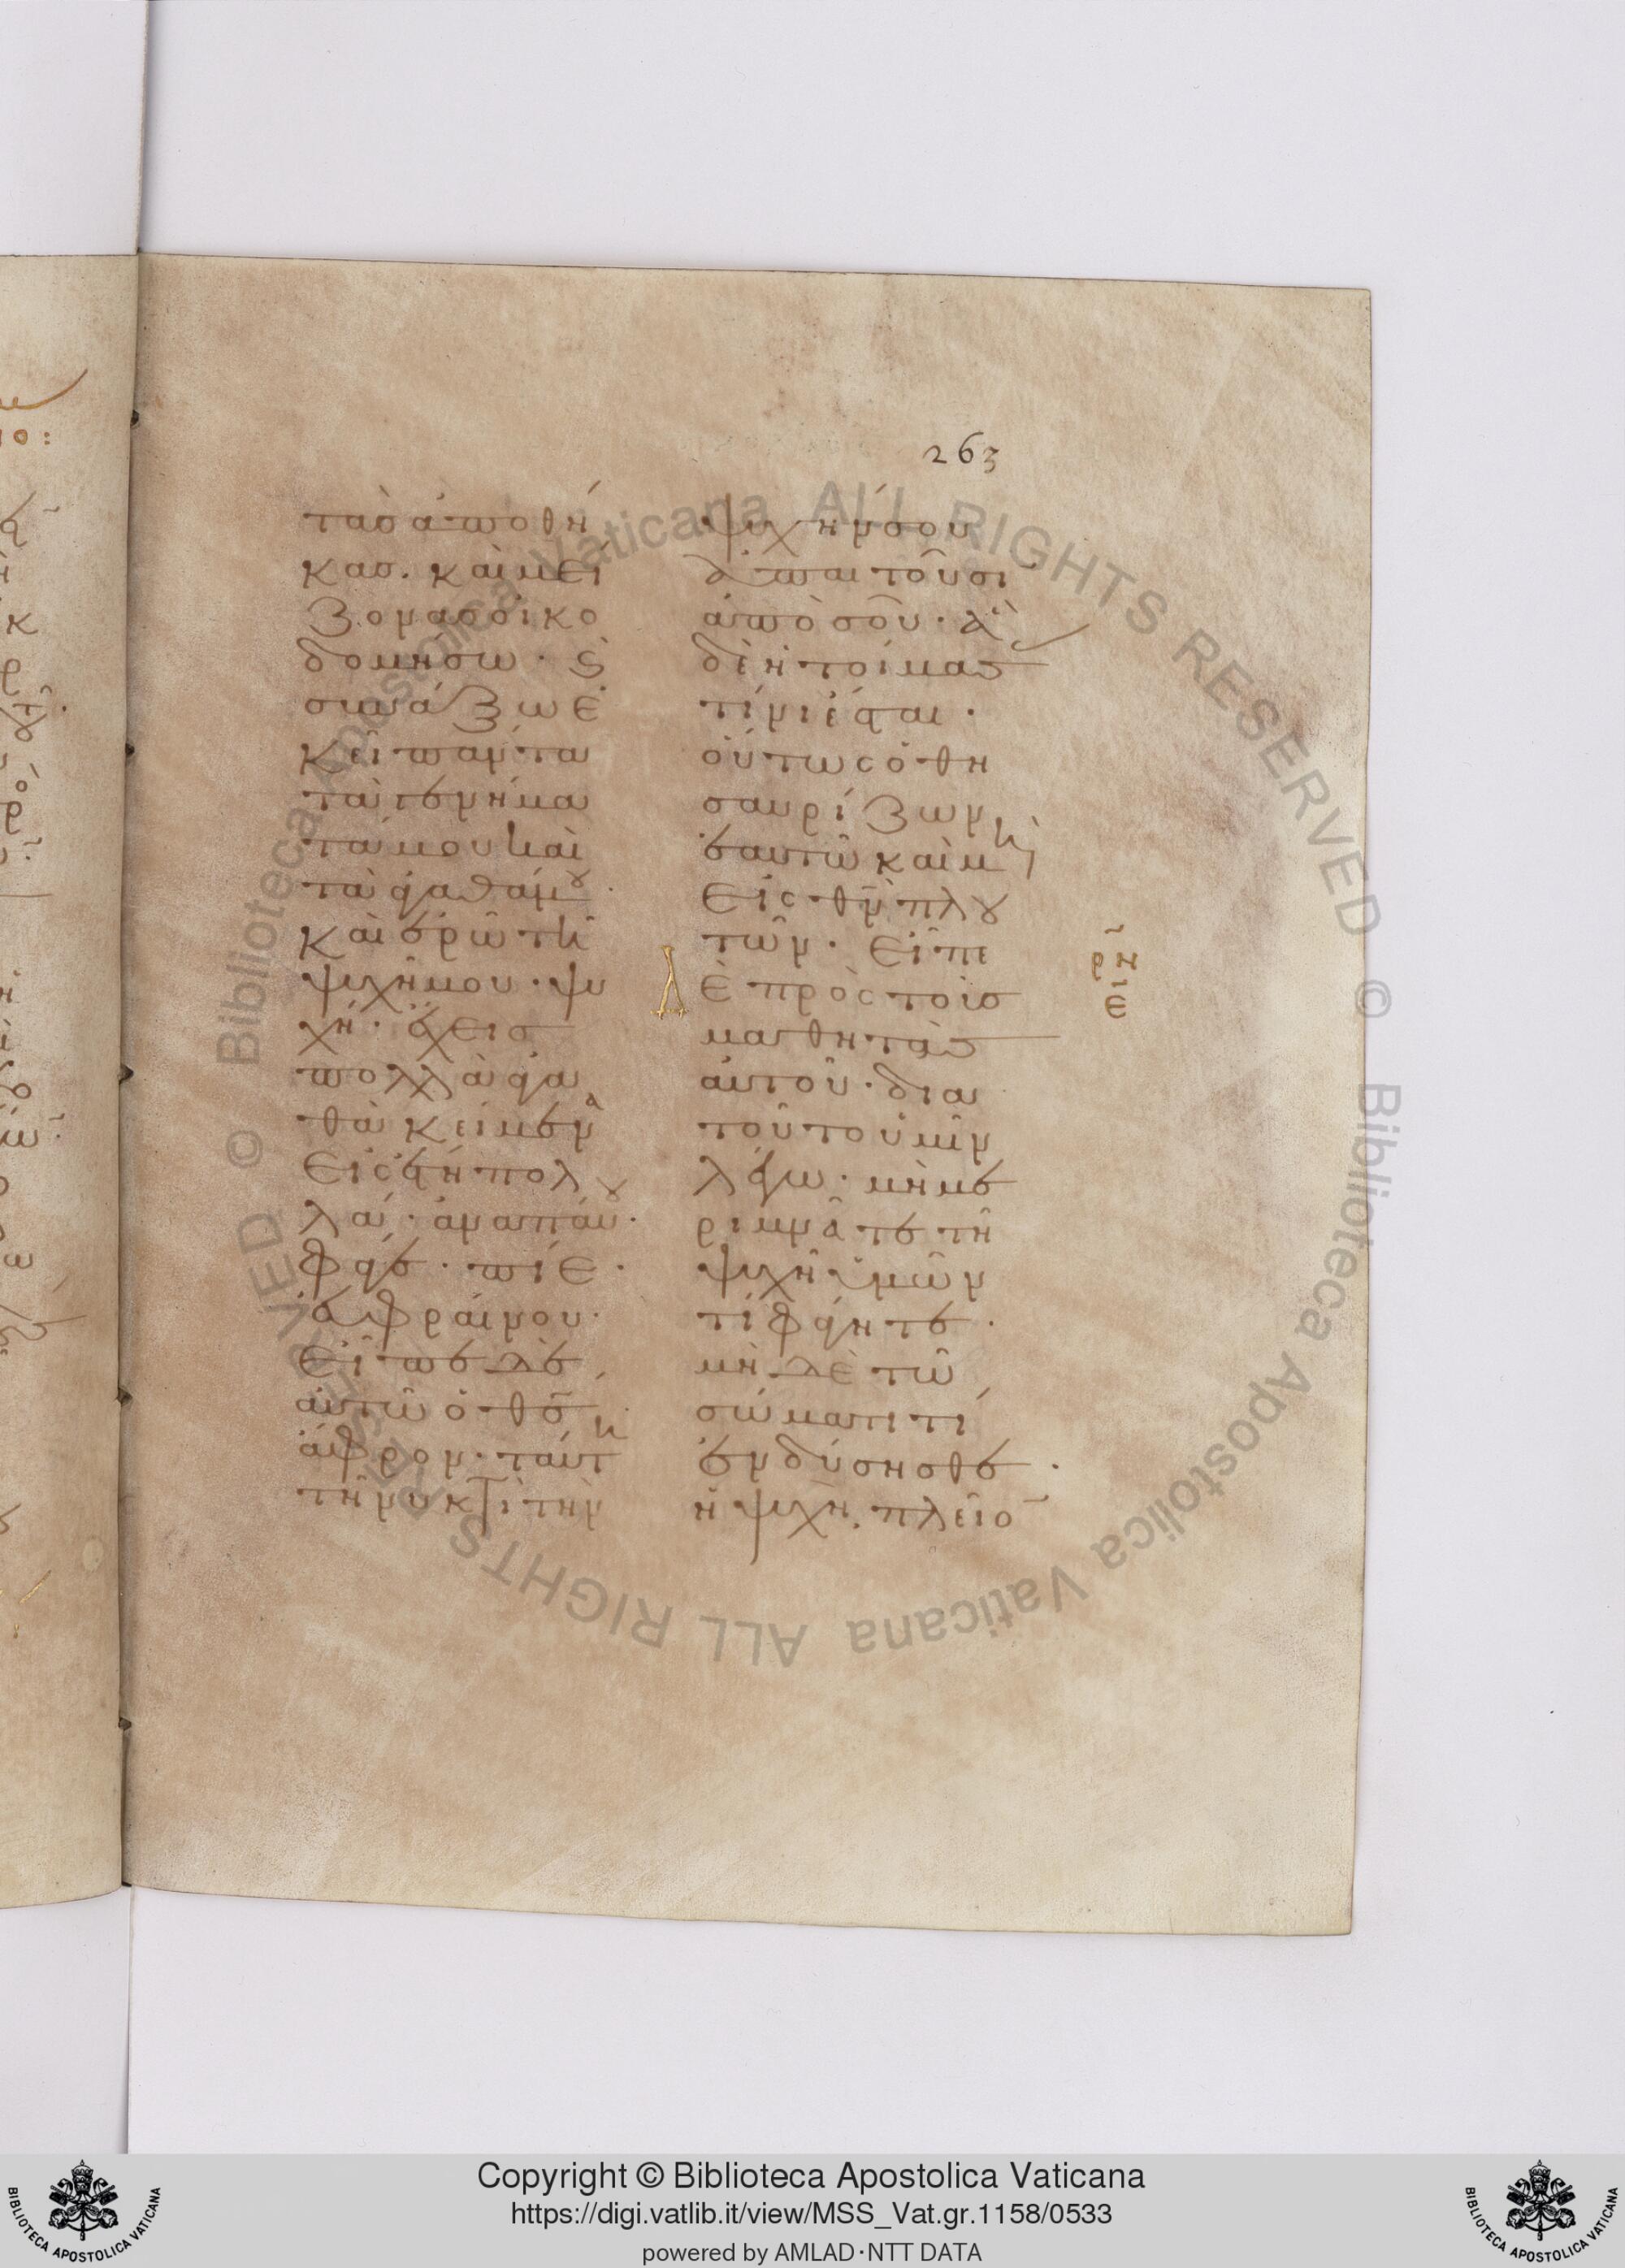 263
τὰσ ἀποθή
κασ. καὶ μεί
ζονασ οἰκο
δομήσω· ϗ
συνάξω ἐ
κεῖ πάντα
τὰ γενήμα
τά μου καὶ
τὰ ἀγαθά μου·
καὶ ἐρῶ τῆ
ψυχῆ μου· ψυ
χή· ἔχεισ
πολλὰ ἀγα
θὰ κείμενα
εἰς ἔτη πολ
λά· ἀναπάου·
φάγε· πίε·
εὐφραίνου·
εἶπε δὲ
αὐτῶ ὁ θσ̄·
ἄφρον· ταύτη
τῆ νυκτὶ τὴν
ψυχήν σου
ἀπαιτοῦσιν
ἀπὸ σοῦ· ἃ
δὲ ἡτοίμασ
τίνι ἔσται·
οὕτως ὁ θη
σαυρίζων
ἑαυτῶ καὶ μὴ
εἰς θν̄ πλου
τῶν. εἶπε
Δὲ πρὸς τοὺσ
μαθητὰσ
αὐτοῦ· δια
τοῦτο ὑμῖν
λέγω· μὴ με
ριμνᾶτε τῆ
ψυχῆ ὑμῶν
τί φάγητε·
μὴ δὲ τῶ
σώματι τί
ἐνδύσησθε·
ἡ ψυχὴ πλεῖο
ρ̄ν
ε
Copyright © Biblioteca Apostolica Vaticana
https://digi.vatlib.it/view/MSS_Vat.gr.1158/0533
powered by AMLAD·NTT DATA
BIBLIOTECA APOSTOLICA VATICANA
BIBLIOTECA APOSTOLICA VATICANA
© Biblioteca Apostolica Vaticana ALL RIGHTS RESERVED
© Biblioteca Apostolica Vaticana ALL RIGHTS RESERVED